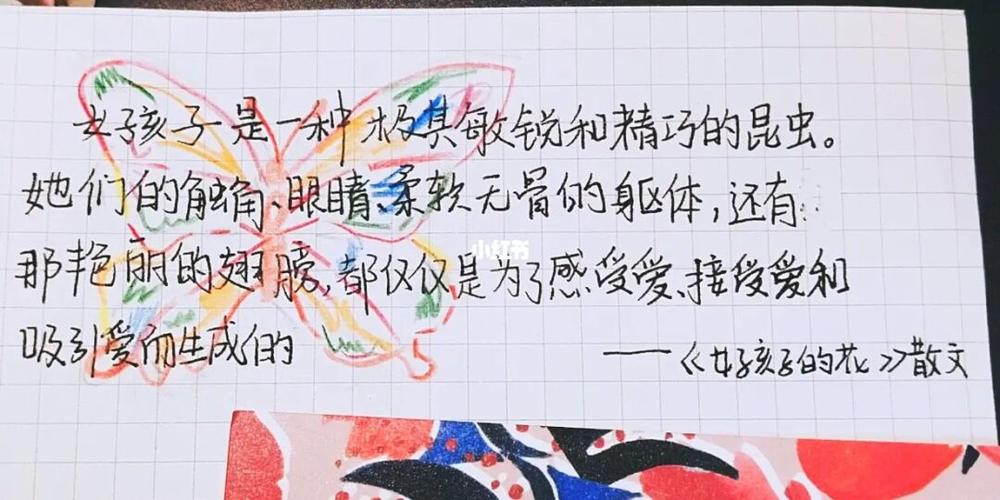 女孩子是一种极其敏锐和精巧的昆虫。
她们的触角、眼睛、柔软无骨的身躯体，还有
那艳丽的翅膀，都仅仅是为了感受爱、接受爱和
吸引爱而生成的
——《女孩子的花》散文
小红书